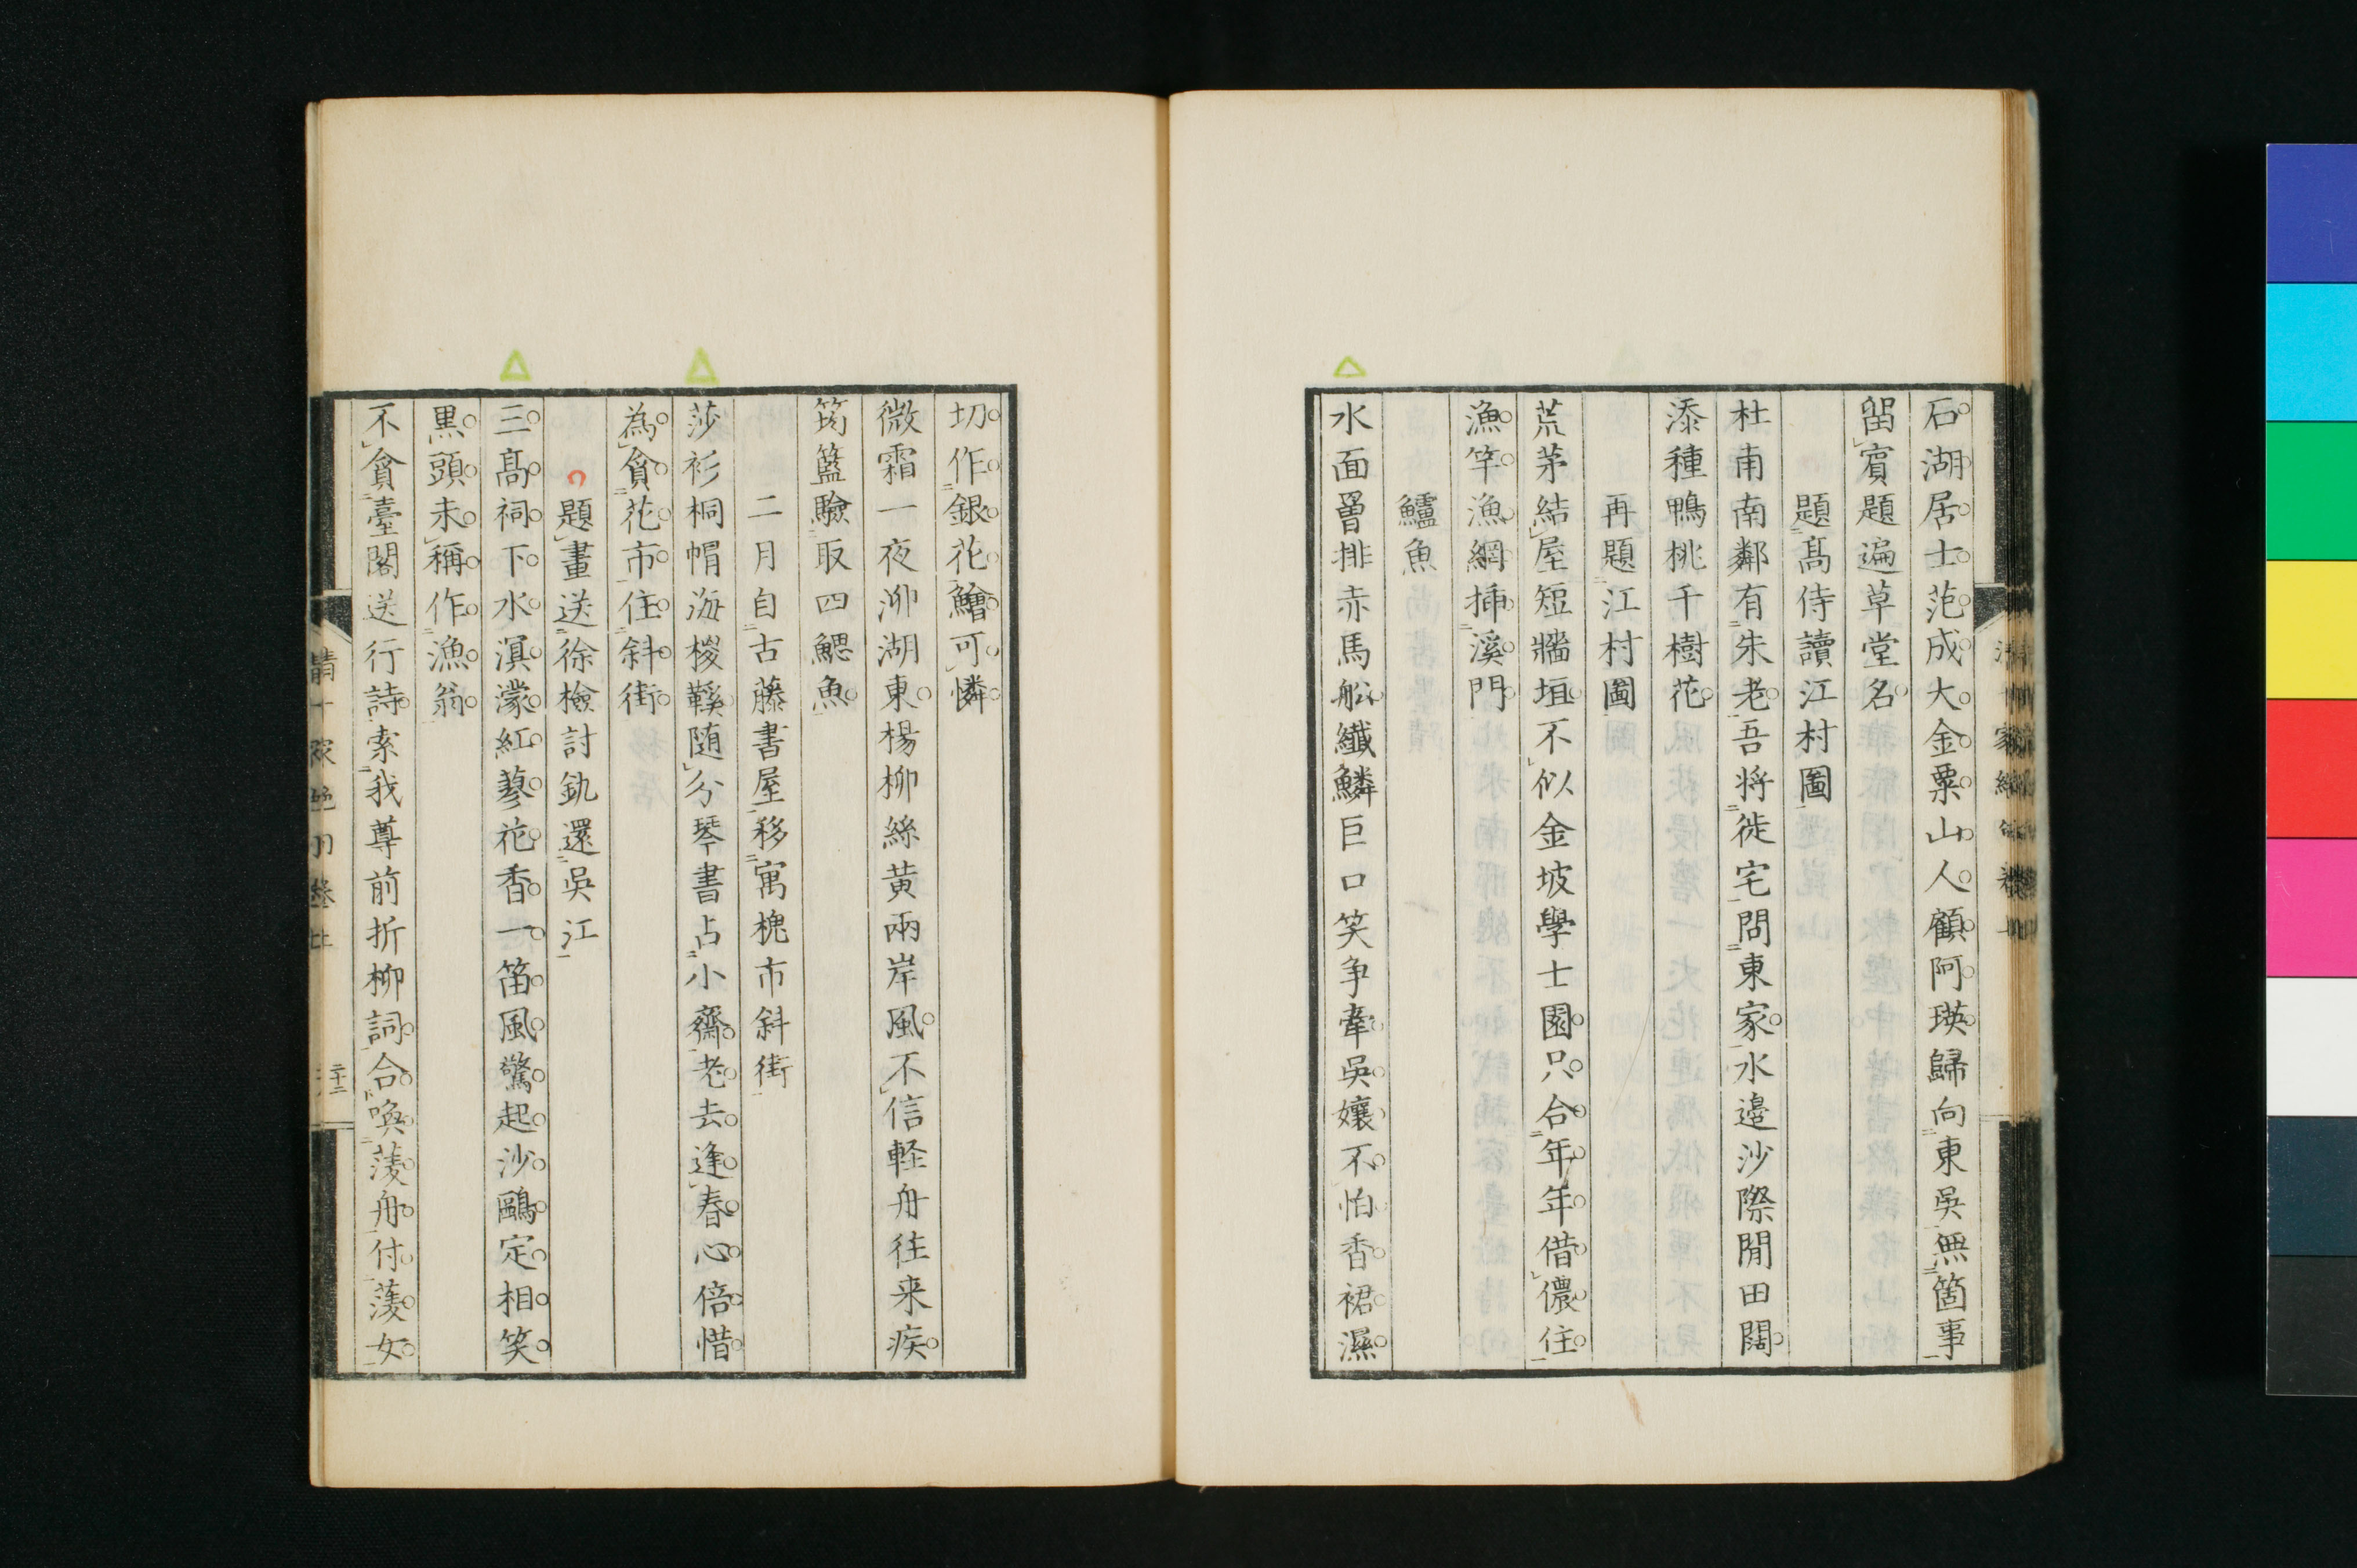 石湖居士范成大金粟山人顧阿瑛歸向東吳無箇事
留賓題遍草堂名
題高侍讀江村圖
杜甫南鄰有朱老吾將徙宅問東家水邊沙際閒田闊
添種鴨桃千樹花
再題江村圖
荒茅結屋短牆垣不似金坡學士園只合年年借儂住
漁竿漁網挿溪門
鱸魚
水面曾排赤馬船纖鱗巨口笑争牽吳孃不怕香裙濕
切作銀花鱠可憐
微霜一夜泖湖東楊柳絲黄兩岸風不信軽舟往来疾
筠籃驗取四鰓魚
二月自古藤書屋移寓槐市斜街
莎衫桐帽海椶鞵随分琴書占小齋老去逢春心倍惜
為貪花市住斜街
題畫送徐檢討釚還吳江
三高祠下水溟濛紅蓼花香一笛風驚起沙鷗定相笑
黒頭未稱作漁翁
不貪臺閣送行詩索我尊前折柳詞合喚蔆舟付蔆女